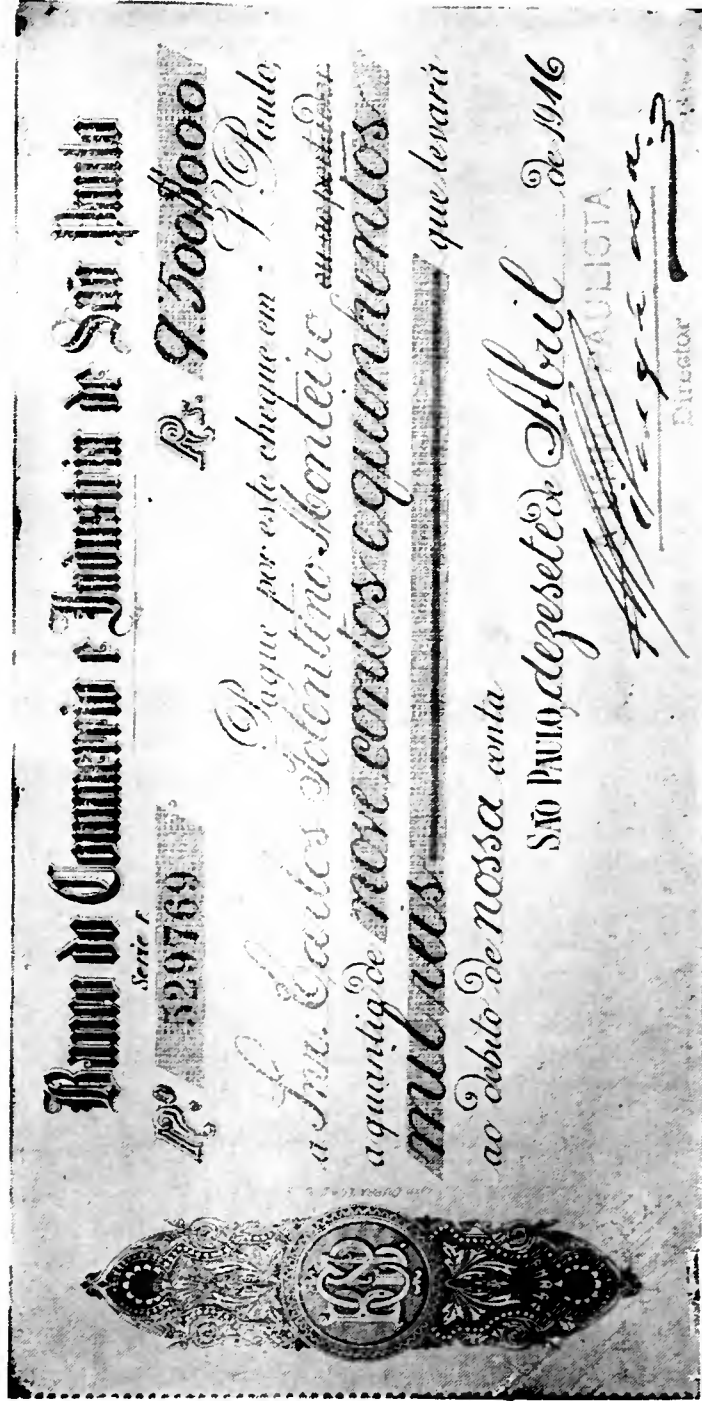 Banco do Commercio e Industria de São Paulo
Serie F
Nº 529769 Rs. 9:500$000
Pague por este cheque em S. Paulo,
a Snr. Carlos Tolentino Monteiro ou ao portador
a quantia de nove contos e quinhentos
mil reis que levará
ao debito de nossa conta
SÃO PAULO, dezesete de Abril de 1916
PAULISTA
Director